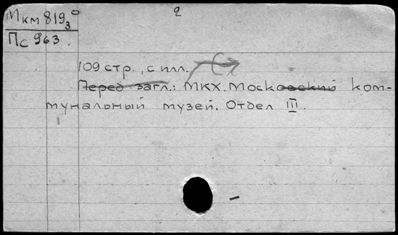 Мкм 819₃⁰
2
Пс 963.
109 стр., с илл.
Перед загл.: МКХ. Московский ком-
мунальный музей. Отдел III.